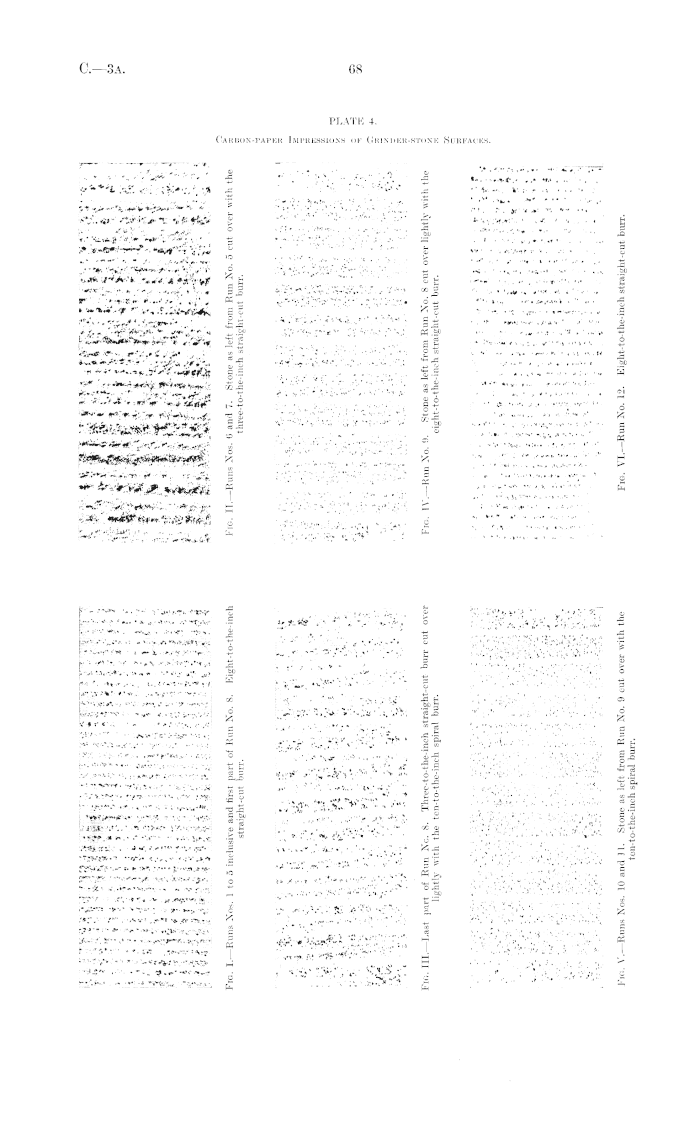 C.—3A.
68
PLATE 4.
CARBON-PAPER IMPRESSIONS OF GRINDER-STONE SURFACES.
FIG. II.—Runs Nos. 6 and 7. Stone as left from Run No. 5 cut over with the
three-to-the-inch straight-cut burr.
FIG. IV.—Run No. 9. Stone as left from Run No. 8 cut over lightly with the
eight-to-the-inch straight-cut burr.
FIG. VI.—Run No. 12. Eight-to-the-inch straight-cut burr.
FIG. I.—Runs Nos. 1 to 5 inclusive and first part of Run No. 8. Eight-to-the-inch
straight-cut burr.
FIG. III.—Last part of Run No. 8. Three-to-the-inch straight-cut burr cut over
lightly with the ten-to-the-inch spiral burr.
FIG. V.—Runs Nos. 10 and 11. Stone as left from Run No. 9 cut over with the
ten-to-the-inch spiral burr.